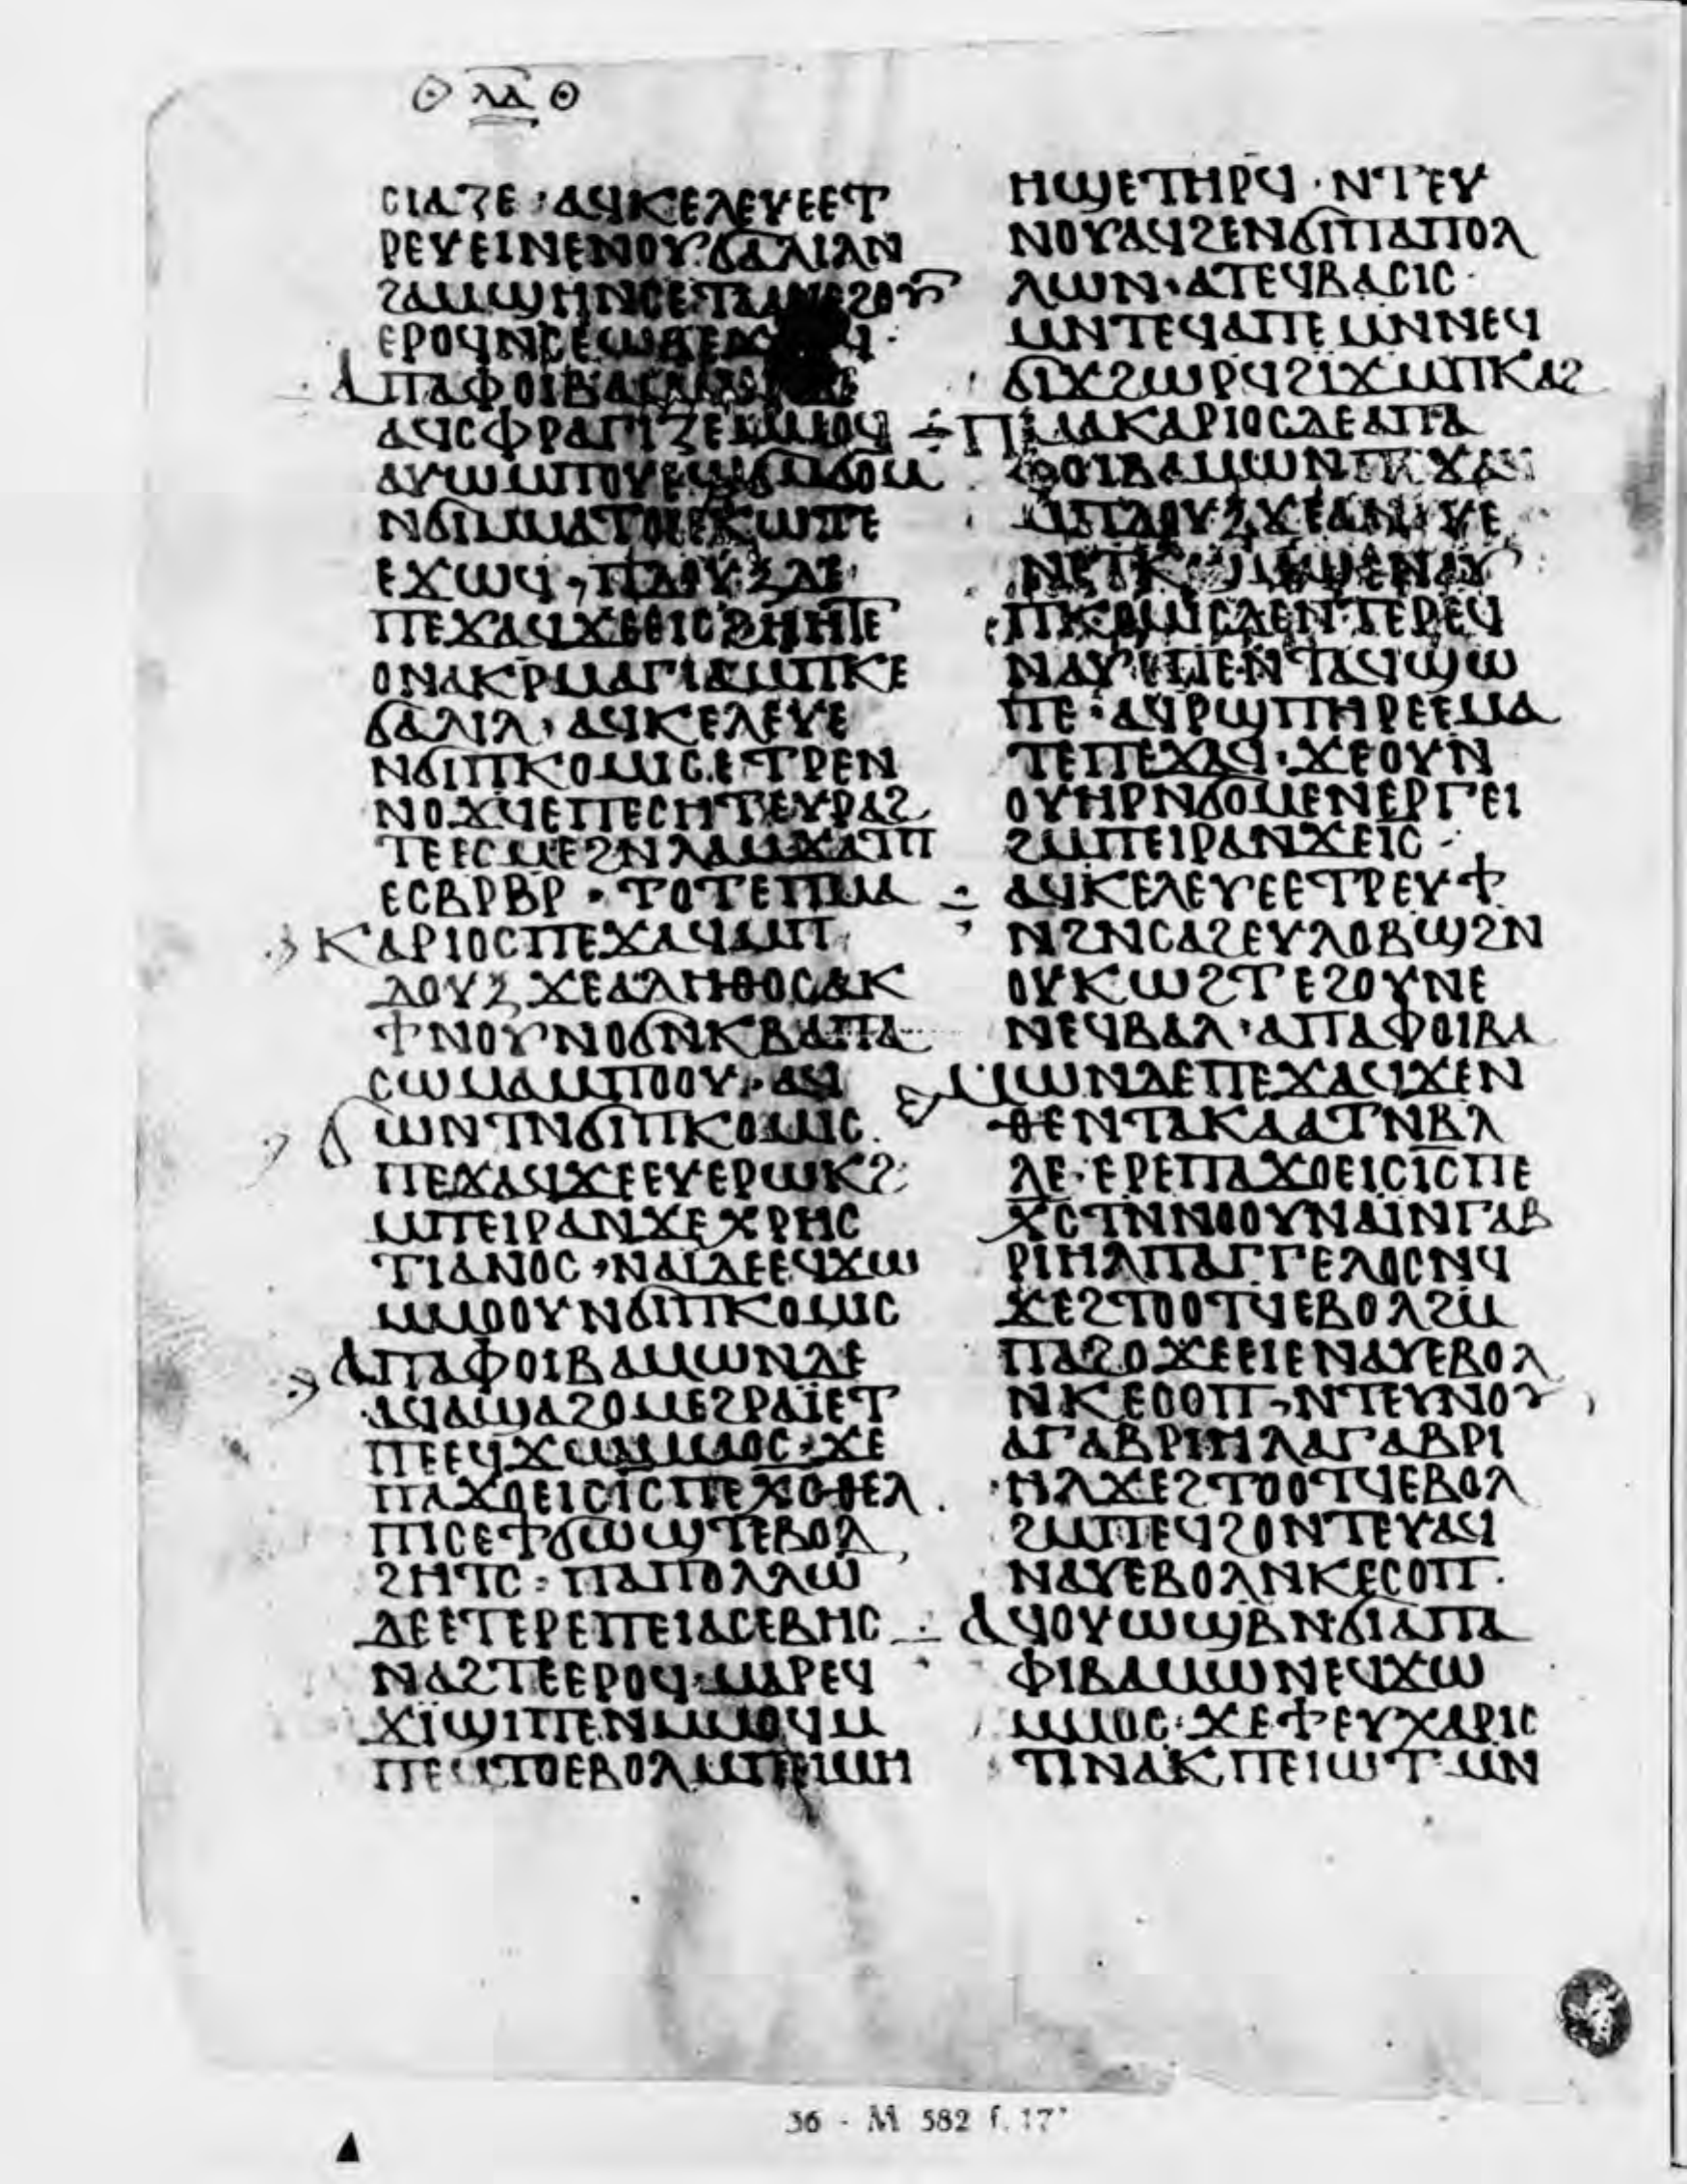 ⲗⲁ
ⲥⲓⲁⲍⲉ · ⲁϥⲕⲉⲗⲉⲩⲉⲉⲧ
ⲣⲉⲩⲉⲓⲛⲉⲛⲟⲩϭⲁⲗⲓⲁⲛ
ϩⲁⲙϣⲏⲛⲥⲉ
ⲉⲣⲟϥⲛⲥⲉ
ⲁⲡⲁⲫⲟⲓⲃⲁ
ⲁϥⲥⲫⲣⲁⲅⲓⲍⲉⲙⲙⲟϥ
ⲁⲩⲱⲙⲡⲟⲩⲉϣϭⲙϭⲟⲙ
ⲛϭⲓⲙⲙⲁⲧⲟⲓⲉⲕⲱⲧⲉ
ⲉϫⲱϥ · ⲡⲇⲟⲩⲝⲇⲉ
ⲡⲉϫⲁϥϫⲉⲉⲓⲥϩⲏⲏⲧⲉ
ⲟⲛⲁⲕⲣⲙⲁⲅⲓⲁⲙⲡⲕⲉ
ϭⲁⲗⲓⲗ · ⲁϥⲕⲉⲗⲉⲩⲉ
ⲛϭⲓⲡⲕⲟⲙⲓⲥ·ⲉⲧⲣⲉⲛ
ⲛⲟϫϥⲉⲡⲉⲥⲏⲧⲉⲩⲣⲁϩ
ⲧⲉⲉⲥⲙⲉϩⲛⲗⲁⲙϫⲁⲧⲡ
ⲉⲥⲃⲣⲃⲣ · ⲧⲟⲧⲉⲡⲙⲁ
ⲕⲁⲣⲓⲟⲥⲡⲉϫⲁϥⲙⲡ
ⲇⲟⲩⲝ ϫⲉⲁⲗⲏⲑⲟⲥⲁⲕ
ϯⲛⲟⲩⲛⲟϭⲛⲕⲃⲁⲡⲁ
ⲥⲱⲙⲁⲙⲡⲟⲟⲩ · ⲁϥ
ϭⲱⲛⲧⲛϭⲓⲡⲕⲟⲙⲓⲥ
ⲡⲉϫⲁϥϫⲉⲉⲩⲉⲣⲱⲕϩ
ⲙⲡⲉⲓⲣⲁⲛϫⲉⲭⲣⲏⲥ
ⲧⲓⲁⲛⲟⲥ · ⲛⲁⲓⲇⲉⲉϥϫⲱ
ⲙⲙⲟⲟⲩⲛϭⲓⲡⲕⲟⲙⲓⲥ
ⲁⲡⲁⲫⲟⲓⲃⲁⲙⲱⲛⲇⲉ
ⲁϥⲁϣⲁϩⲟⲙⲉϩⲣⲁⲓⲉⲧ
ⲡⲉⲉϥϫⲱⲙⲙⲟⲥ · ϫⲉ
ⲡⲁϫⲟⲉⲓⲥⲓⲥⲡⲉⲭⲥⲑⲉⲗ
ⲡⲓⲥⲉϯϭⲱϣⲧⲉⲃⲟⲗ
ϩⲏⲧⲥ · ⲡⲁⲡⲟⲗⲗⲱ
ⲇⲉⲉⲧⲉⲣⲉⲡⲉⲓⲁⲥⲉⲃⲏⲥ
ⲛⲁϩⲧⲉⲉⲣⲟϥ·ⲙⲁⲣⲉϥ
ϫⲓϣⲓⲡⲉⲛⲙⲙⲟϥⲙ
ⲡⲉⲙⲧⲟⲉⲃⲟⲗⲙⲡⲉⲓⲙⲏ
ⲏϣⲉⲧⲏⲣϥ · ⲛⲧⲉⲩ
ⲛⲟⲩⲁϥϩⲉⲛϭⲓⲡⲁⲡⲟⲗ
ⲗⲱⲛ · ⲁⲧⲉϥⲃⲁⲥⲓⲥ ·
ⲙⲛⲧⲉϥⲁⲡⲉⲙⲛⲛⲉϥ
ϭⲓϫϩⲱⲣϥϩⲓϫⲙⲡⲕⲁϩ
ⲡⲙⲁⲕⲁⲣⲓⲟⲥⲇⲉⲁⲡⲁ
ⲫⲟⲓⲃⲁⲙⲱⲛⲡⲉϫⲁϥ
ⲙⲡⲇⲟⲩⲝϫⲉ
ⲡⲕⲟⲙⲓⲥⲇⲉⲛⲧⲉⲣⲉϥ
ⲛⲁⲩⲉⲡⲉⲛⲧⲁϥϣⲱ
ⲡⲉ · ⲁϥⲣϣⲡⲏⲣⲉⲉⲙⲁ
ⲧⲉⲡⲉϫⲁϥ · ϫⲉⲟⲩⲛ
ⲟⲩⲏⲣⲛϭⲟⲙⲉⲛⲉⲣⲅⲉⲓ
ϩⲙⲡⲉⲓⲣⲁⲛϫⲉⲓⲥ ·
ⲁϥⲕⲉⲗⲉⲩⲉⲉⲧⲣⲉⲩϯ
ⲛϩⲛⲥⲁϩⲉⲩⲗⲟⲃϣϩⲛ
ⲟⲩⲕⲱϩⲧⲉϩⲟⲩⲛⲉ
ⲛⲉϥⲃⲁⲗ · ⲁⲡⲁⲫⲟⲓⲃⲁ
ⲙⲱⲛⲇⲉⲡⲉϫⲁϥϫⲉⲛ
ⲑⲉⲛⲧⲁⲕⲁⲁⲧⲛⲃⲗ
ⲗⲉ·ⲉⲣⲉⲡⲁϫⲟⲉⲓⲥⲓⲥⲡⲉ
ⲭⲥⲧⲛⲛⲟⲟⲩⲛⲁⲓⲛⲅⲁⲃ
ⲣⲓⲏⲗⲡⲁⲅⲅⲉⲗⲟⲥⲛϥ
ϫⲉϩⲧⲟⲟⲧϥⲉⲃⲟⲗϩⲙ
ⲡⲁϩⲟϫⲉⲉⲓⲉⲛⲁⲩⲉⲃⲟⲗ
ⲛⲕⲉⲥⲟⲡ · ⲛⲧⲉⲩⲛⲟⲩ
ⲁⲅⲁⲃⲣⲓⲏⲗⲁⲅⲁⲃⲣⲓ
ⲏⲗϫⲉϩⲧⲟⲟⲧϥⲉⲃⲟⲗ
ϩⲙⲡⲉϥϩⲟⲛⲧⲉⲩⲁϥ
ⲛⲁⲩⲉⲃⲟⲗⲛⲕⲉⲥⲟⲡ ·
ⲁϥⲟⲩⲱϣⲃⲛϭⲓⲁⲡⲁ
ⲫⲓⲃⲁⲙⲱⲛⲉϥϫⲱ
ⲙⲙⲟⲥ · ϫⲉϯⲉⲩⲭⲁⲣⲓⲥ
ⲧⲓⲛⲁⲕⲡⲉⲓⲱⲧ ⲙⲛ
36 - M 582 f. 17ᵛ